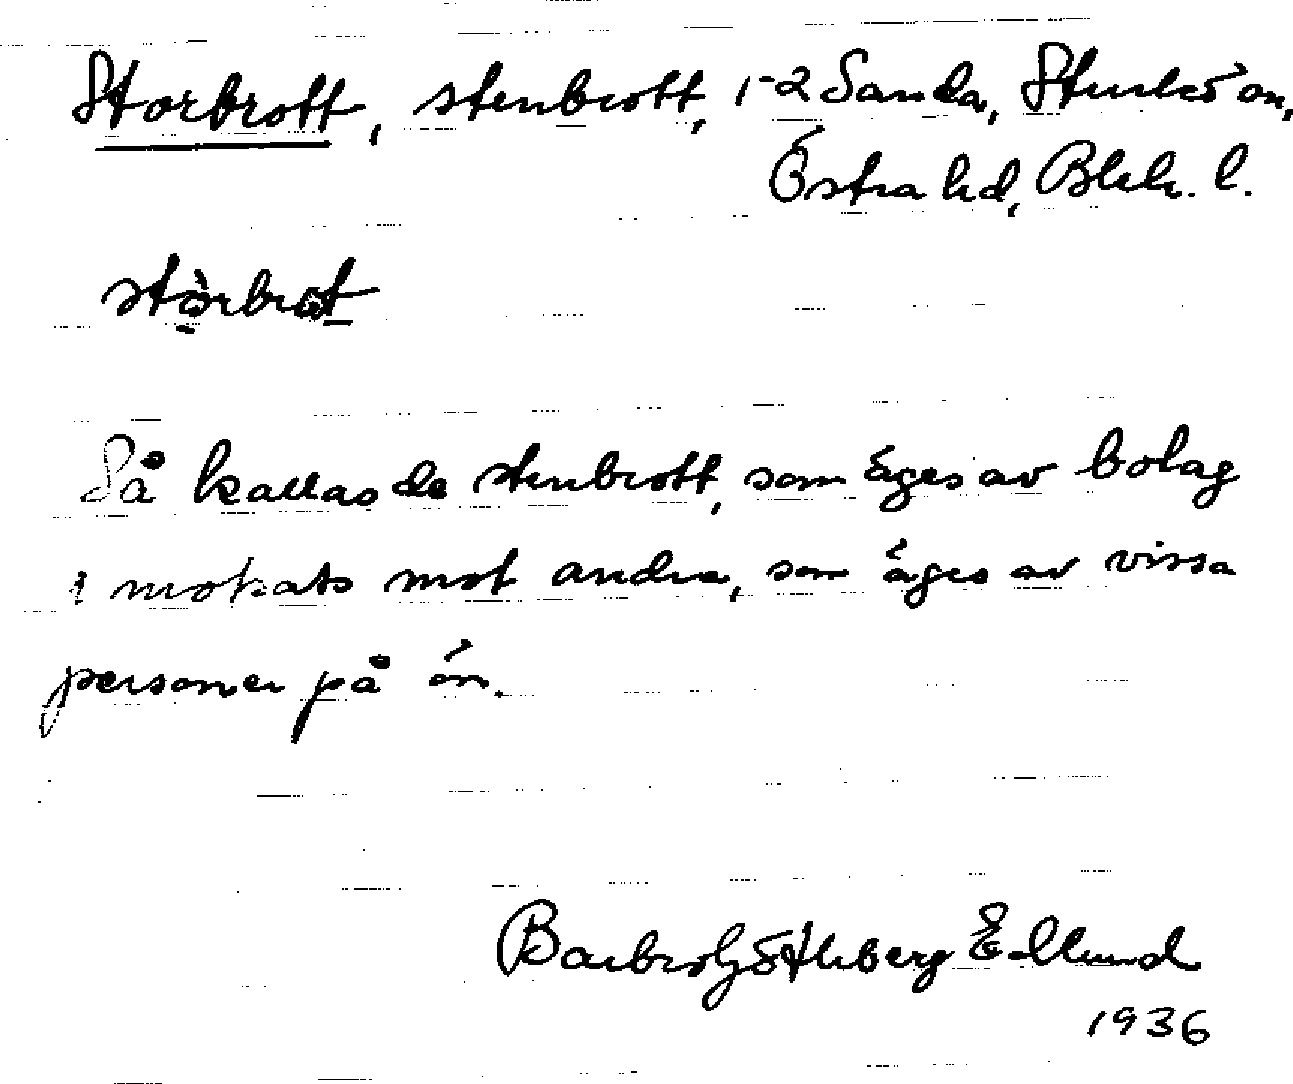 Storbrott, stenbrott, 1-2 Sanda, Sturkö sn,
Östra hd, Blek. l.
stòrbrot
Så kallas de stenbrott, som äges av bolag
i motsats mot andra, som äges av vissa
personer på ön.
Barbro Göthberg Edlund
1936